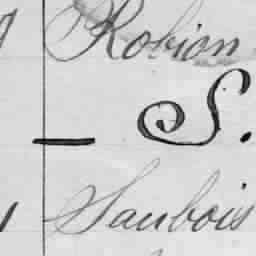 Robion
— S.
Saubois